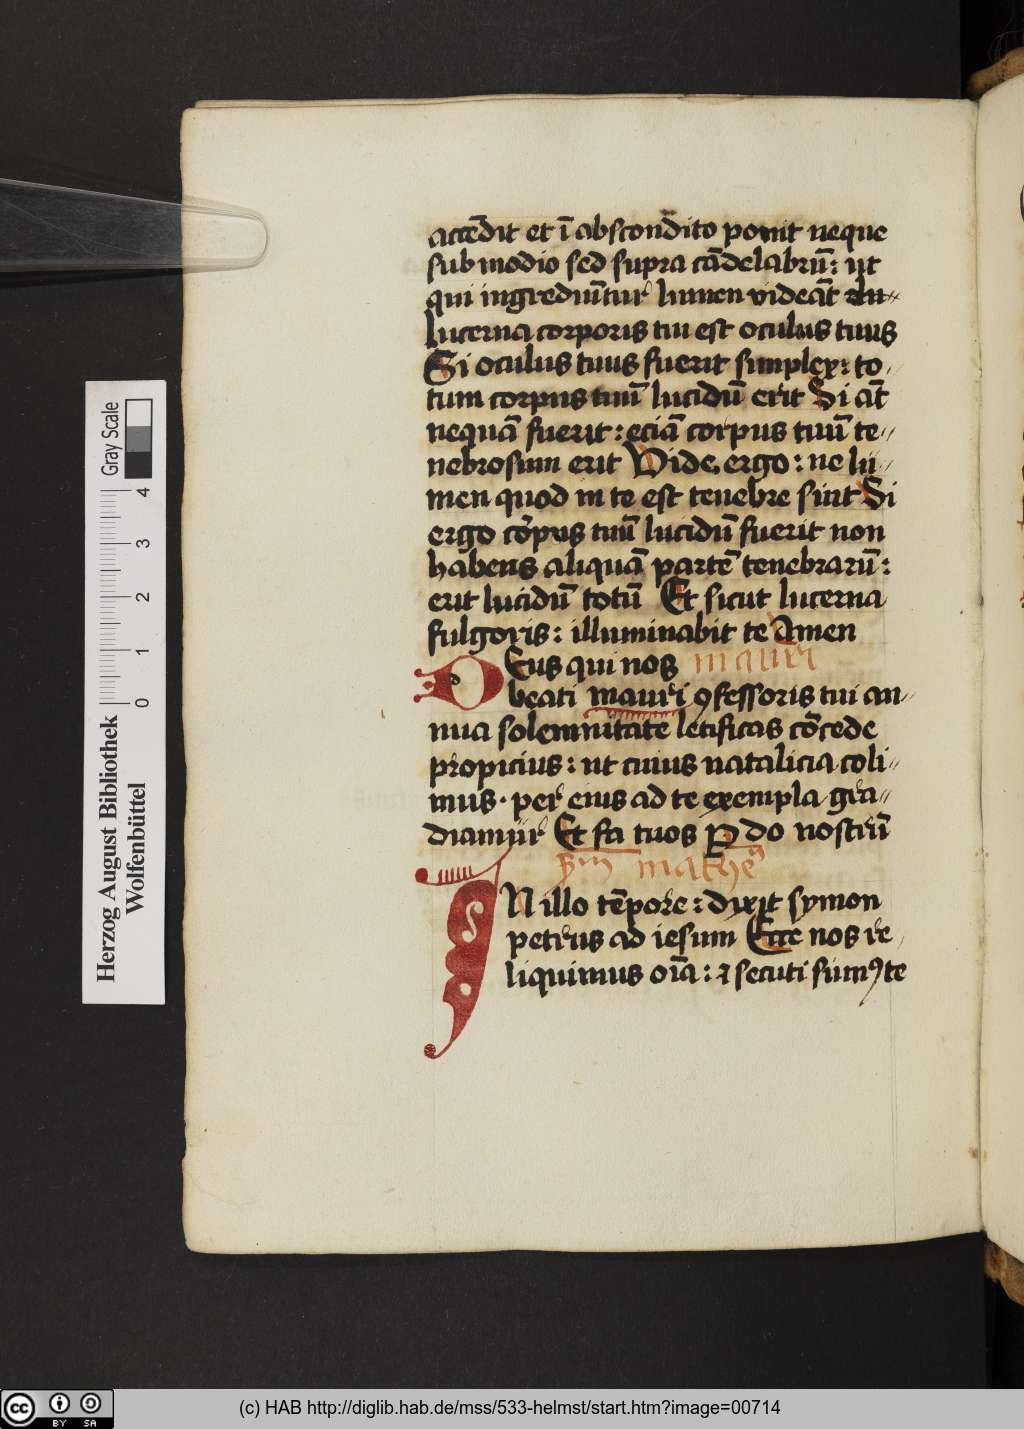 accēdit et ī abscondito ponit neque
sub modio sed supra cādelabrū: ut
qui ingrediūtur lumen videāt
lucerna corporis tui est oculus tuus
Si oculus tuus fuerit simplex: to
tum corpus tuū lucidū erit Si āt
nequā fuerit: eciā corpus tuū te
nebrosum erit Vide. ergo: ne lu
men quod in te est tenebre sint Si
ergo cōrpus tuū lucidū fuerit non
habens aliquā partē tenebrarū:
erit lucidū totū Et sicut lucerna
fulgoris: illuminabit te Amen
Deus qui nos mauri
beati mauri ꝯfessoris tui an
nua solemnitate letificas cōcede
propicius: ut cuius natalicia coli
mus. per eius ad te exempla gra
diamur Et fa tuos P do nostrū
mathe
IN illo tēpore: dixit symon
petrus ad iesum Ecce nos re
liquimus oīa: ⁊ secuti sumꝰ te
Gray Scale
4
3
2
1
0
Herzog August Bibliothek
Wolfenbüttel
cc
BY
SA
(c) HAB http://diglib.hab.de/mss/533-helmst/start.htm?image=00714